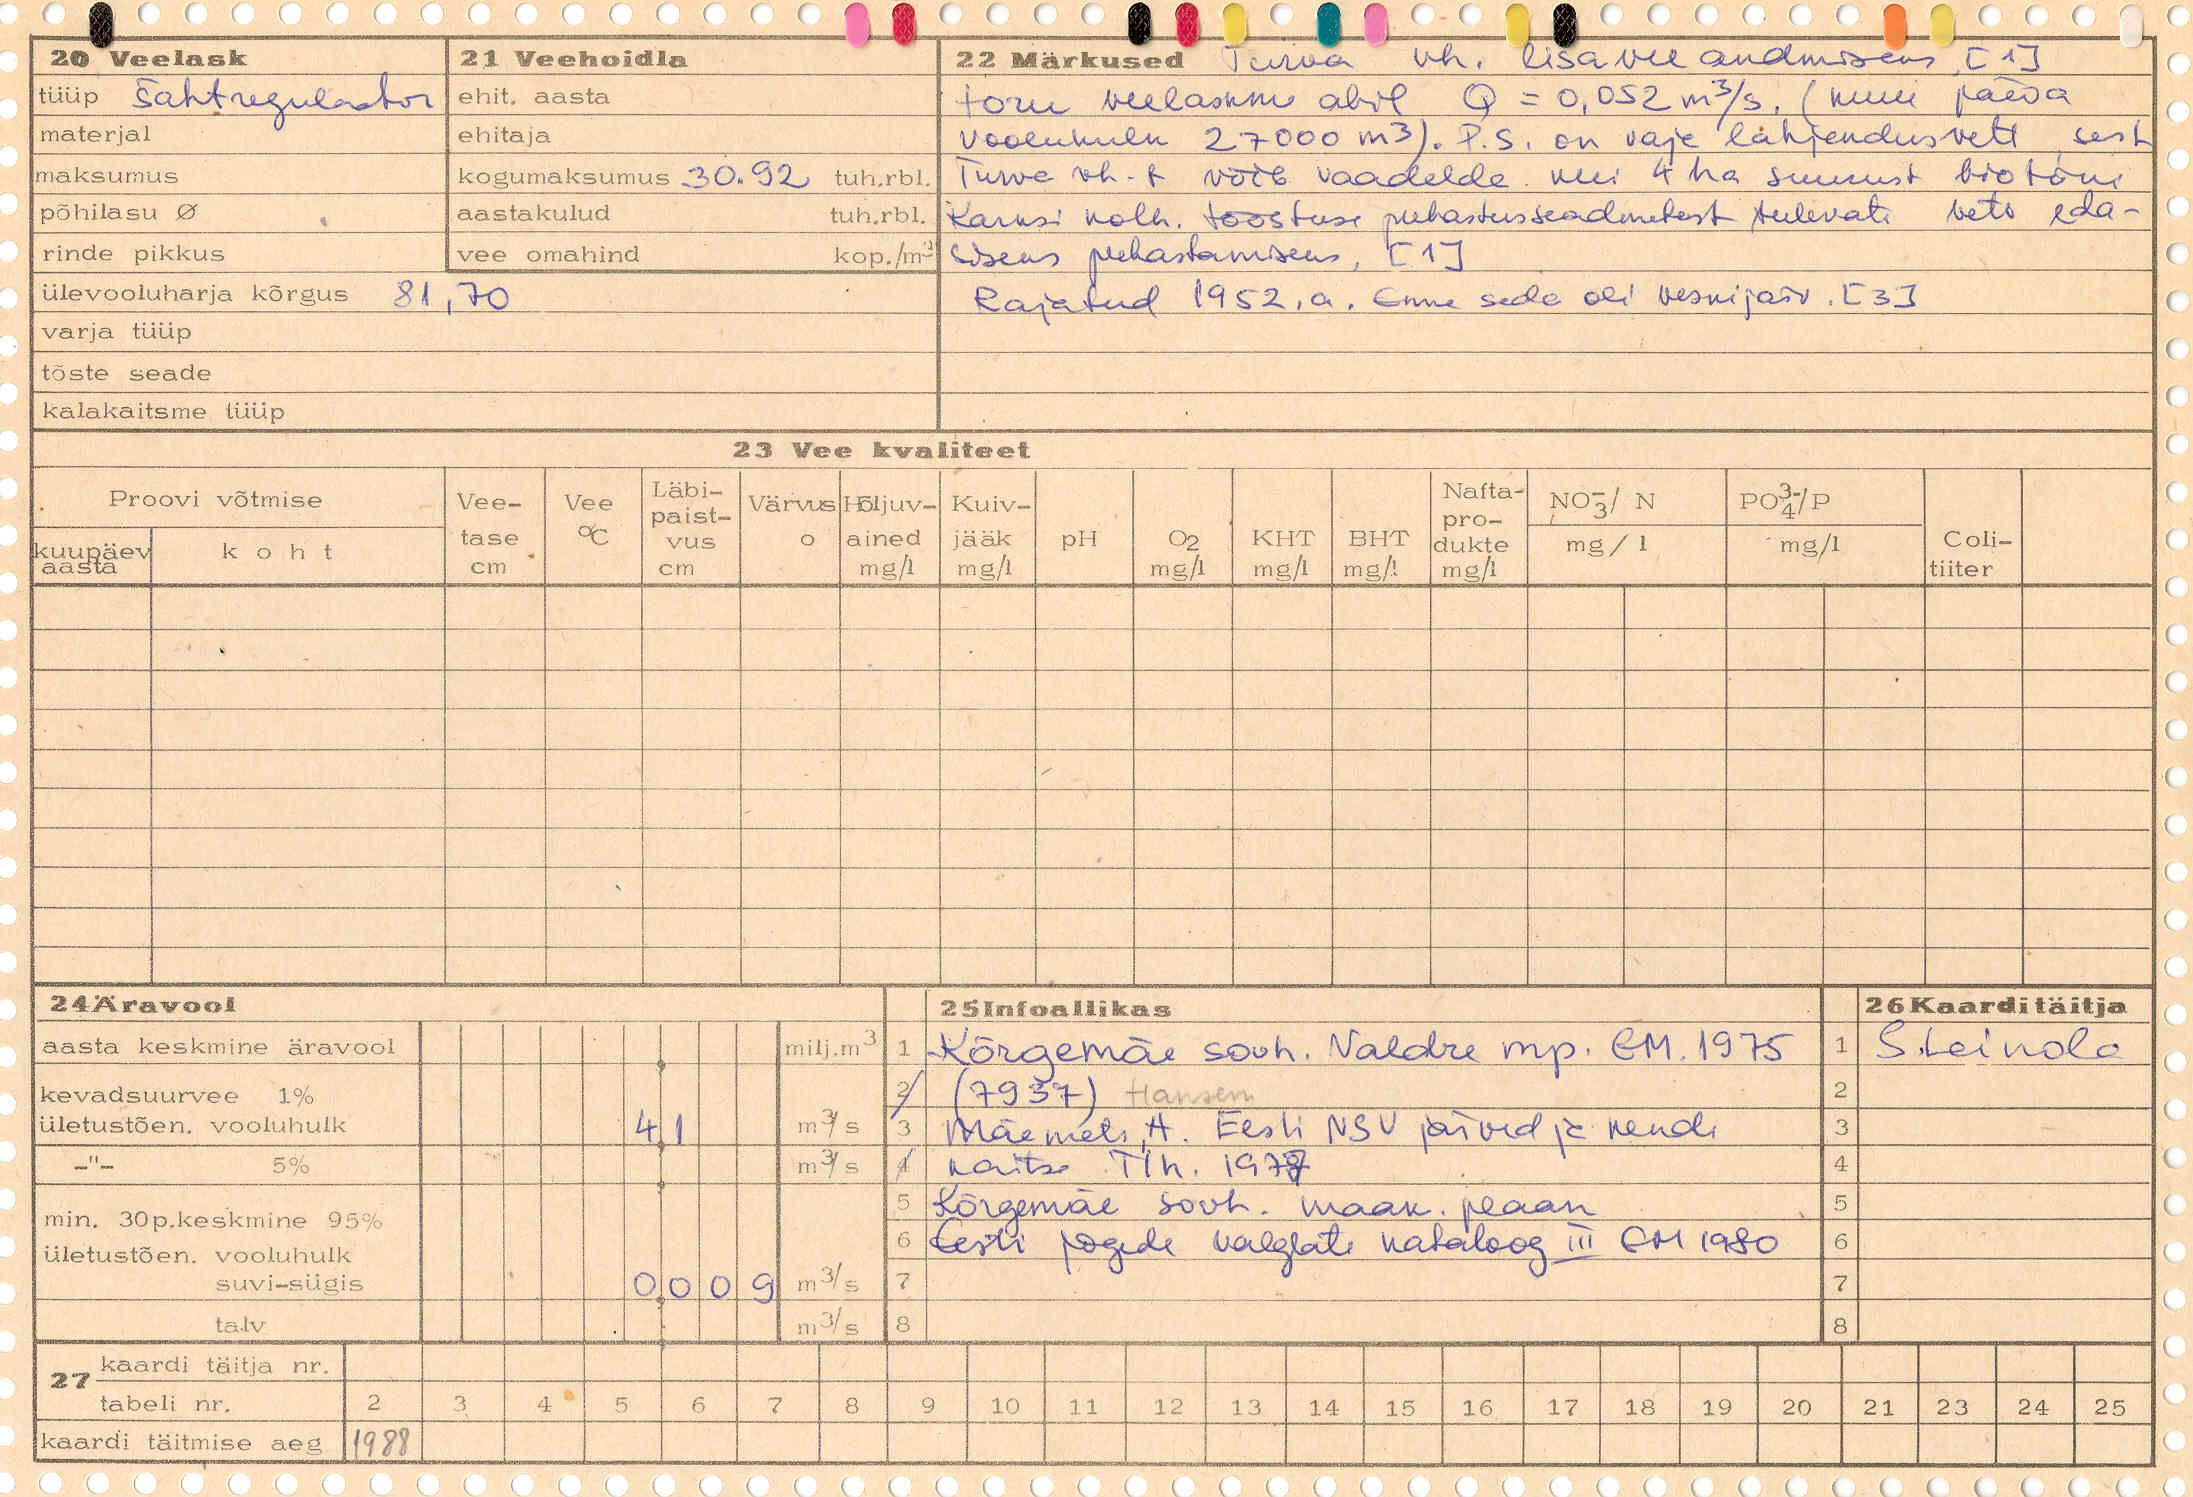 20 Veelask
tüüp Šahtregulaator
materjal
maksumus
põhilasu Ø
rinde pikkus
ülevooluharja kõrgus 81,70
varja tüüp
tõste seade
kalakaitsme tüüp
21 Veehoidla
ehit. aasta
ehitaja
kogumaksumus 30.92 tuh.rbl.
aastakulud tuh.rbl.
vee omahind kop./m3
22 Märkused Turva vh. lisavee andmiseks [1]
toru veelaskme abil Q = 0,052 m3/s. (kuue päeva
vooluhulk 27000 m3). P.S. on vaja lahjendusvett, sest
Turva vh-t võib vaadelda kui 4 ha suurust biotiiki
Karksi kolh. tööstuse puhastusseadmetest tulevate vete eda-
siseks puhastamiseks, [1]
Rajatud 1952.a. Enne seda oli veskijärv. [3]
23 Vee kvaliteet
Proovi võtmise
kuupäev aasta
koht
Vee-tase cm
Vee °C
Läbi-paist-vus cm
Värvus o
Hõljuv-ained mg/l
Kuiv-jääk mg/l
pH
O2 mg/l
KHT mg/l
BHT mg/l
Nafta-pro-dukte mg/l
NO3-/ N mg/l
PO4 3-/P mg/l
Coli-tiiter
24 Äravool
aasta keskmine äravool milj.m3
kevadsuurvee 1%
ületustõen. vooluhulk 4 1 m3/s
-"- 5% m3/s
min. 30p.keskmine 95%
ületustõen. vooluhulk
suvi-sügis 0 0 0 9 m3/s
talv m3/s
25 Infoallikas
1 Kõrgemäe sovh. Valdre mp. EM. 1975
2 (7937) Hansen
3 Mäemets, A. Eesti NSV järved ja nende
4 kaitse Tln. 1977
5 Kõrgemäe sovh. maak. plaan
6 Eesti jõgede valglate kataloog III EM 1980
7
8
26 Kaardi täitja
1 S.Leinola
2
3
4
5
6
7
8
27 kaardi täitja nr.
tabeli nr. 2 3 4 5 6 7 8 9 10 11 12 13 14 15 16 17 18 19 20 21 23 24 25
kaardi täitmise aeg 1988